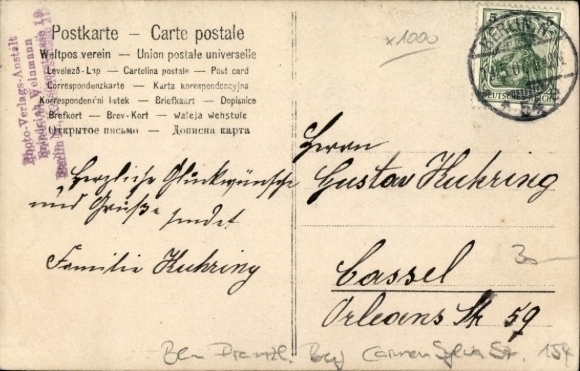 Postkarte — Carte postale
Weltpostverein — Union postale universelle
Levelező-Lap — Cartolina postale — Post card
Correspondenzkarte — Karta korespondencyjna
Korrespondenční lístek — Briefkaart — Dopisnice
Brefkort — Brev-Kort — Открытое письмо
Photo-Verlags-Anstalt
Weinmann
Berlin
x1000
5 5
BERLIN
DEUTSCHES REICH
Herrn
Gustav Kuhring
Herzliche Glückwünsche
und Grüße sendet
Familie Kuhring
30—
Cassel
Orleans Str 59
Bln Prenzl. Berg Carmen Sylva Str. 154